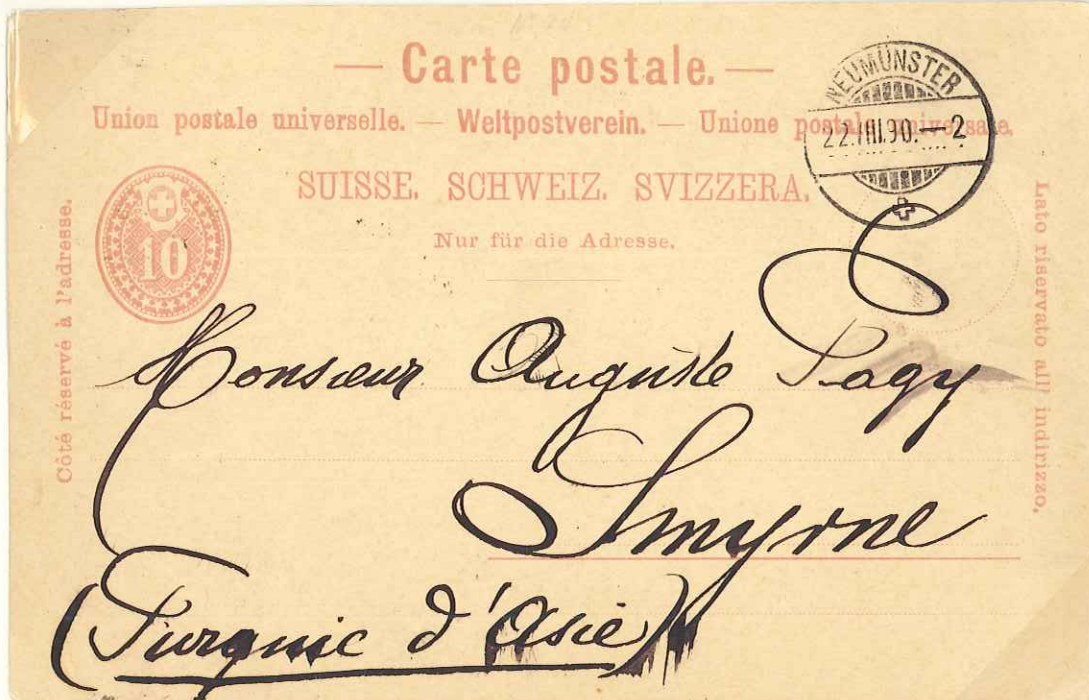 — Carte postale. —
Union postale universelle. — Weltpostverein. — Unione postale universale.
SUISSE. SCHWEIZ. SVIZZERA.
Nur für die Adresse.
NEUMÜNSTER
22.III.90.—2
10
Côté réservé à l'adresse.
Lato riservato all' indirizzo.
Monsieur Auguste Pagy
Smyrne
(Turquie d'Asie)